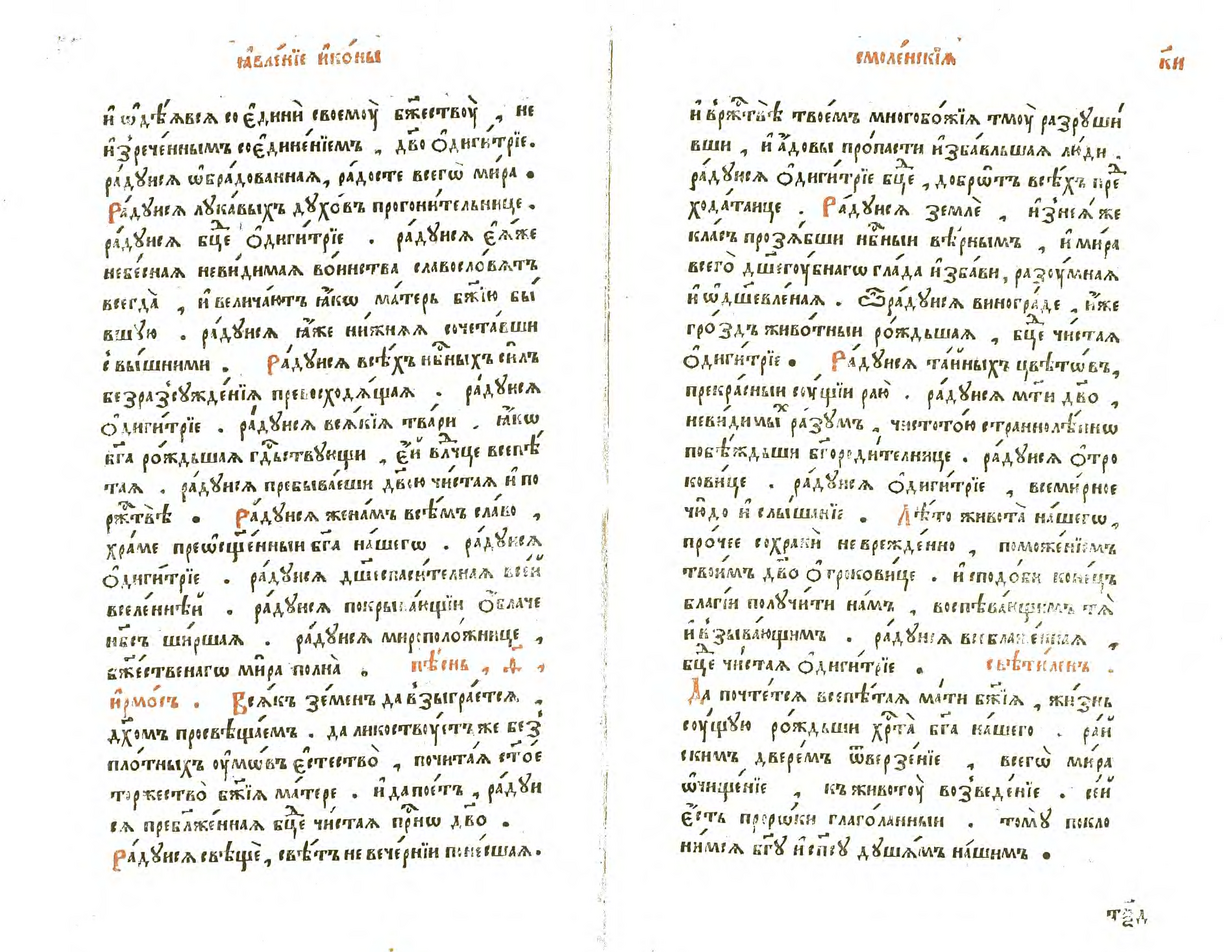 ꙗ҆вле́нїе и҆ко́ны
и҆ ѡ҆дѣ́ѧвсѧ со є҆динѝ своемоу̀ бж҃ествоу̀ , не
и҆зрече́ннымъ соє҆дине́нїемъ , дв҃о Ѻ҆диги́трїе.
ра́дуисѧ ѡ҆бра́дованнаѧ, ра́досте всегѡ̀ ми́ра .
Ра́дуисѧ лука́выхъ духо́въ прогони́тельнице .
ра́дуисѧ бц҃е Ѻ҆диги́трїе . ра́дуисѧ є҆ѧ́же
небе́снаѧ неви́димаѧ во́инства славосло́вѧтъ
всегда̀ , и҆ велича́ютъ ꙗ҆́кѡ ма́терь бж҃їю бы́
вшую . ра́дуисѧ ꙗ҆́же ни́жнѧѧ сочета́вши
с вы́шними . Ра́дуисѧ всѣ́хъ нбⷭ҇ныхъ си́лъ
без раз̾сужде́нїѧ превосходѧ́щаѧ . ра́дуисѧ
Ѻ҆диги́трїе . ра́дуисѧ всѧ́кїѧ тва́ри . ꙗ҆́кѡ
бг҃а ро́ждьшаѧ гдⷭ҇ьствующи , є҆́й влⷣчце всепѣ́
таѧ . ра́дуисѧ пребыва́еши дв҃ою чи́стаѧ и҆ по
ржⷭ҇твѣ̀ . Ра́дуисѧ жена́мъ всѣ́мъ сла́во ,
хра́ме преѡ҆сщ҃е́нныи бг҃а на́шегѡ . ра́дуисѧ
Ѻ҆диги́трїе . ра́дуисѧ дш҃еспаси́телнаѧ все́й
вселе́ннѣй . ра́дуисѧ покрыва́ющїи Ѻ҆́блаче
нбⷭ҇ъ ши́ршаѧ . ра́дуисѧ мироположнице ,
бж҃ественагѡ ми́ра полна̀ . пѣ́снь , ѳ҃ ,
і҆рмо́съ . Всѧ́къ зе́мен да взыгра́етсѧ ,
дх҃омъ просвѣща́емъ . да ликоствоу́етъ же без̾
пло́тныхъ оу҆мѡ́въ є҆стество̀ , почита́ѧ ст҃о́е
торжество̀ бж҃їѧ ма́тере . и҆ да пое́тъ , ра́дуи
сѧ пребл҃же́ннаѧ бц҃е чи́стаѧ прⷭ҇нѡ дв҃о .
Ра́дуисѧ свѣщѐ, свѣ́тъ не вече́рнїи поне́сшаѧ.
смоле́нскїѧ
к҃и
и҆ в ржⷭ҇твѣ̀ твое́мъ многобо́жїѧ тмоу̀ разруши́
вши , и҆ а҆́довы про́пасти и҆зба́вльшаѧ лю́ди .
ра́дуисѧ Ѻ҆диги́трїе бц҃е , добрѡ́тъ всѣ́хъ пре
хода́таице . Ра́дуисѧ землѐ , и҆з̾ неѧ́же
кла́съ прозѧ́бши нбⷭ҇ныи вѣ́рнымъ , и҆ ми́ра
всего̀ дш҃егоу́бнагѡ гла́да и҆зба́ви, разоу́мнаѧ
и҆ ѡ҆дшевле́наѧ . Ѿра́дуисѧ виногра́де , и҆́же
гро́здъ живо́тныи ро́ждьшаѧ , бц҃е чи́стаѧ
Ѻ҆диги́трїе . Ра́дуисѧ та́йныхъ цвѣ́тѡвъ,
прекра́сныи соу́щїи раю̀ . ра́дуисѧ мт҃и дв҃о ,
неви́димыⷯ ра́зумъ , чистото́ю страннолѣ́пнѡ
побѣ́ждьши бг҃ороди́телнице . ра́дуисѧ Ѻ҆тро
кови́це . ра́дуисѧ Ѻ҆диги́трїе , всеми́рное
чю́до и҆ слы́шанїе . Лѣ́то живота̀ на́шегѡ,
про́чее сохранѝ невреждено , поможе́нїемъ
твои́мъ дв҃о Ѻ҆трокови́це . и҆ сподо́би коне́цъ
благі́и получи́ти на́мъ , воспѣва́ющимъ тѧ̀
и҆ взыва́ющимъ . ра́дуисѧ всеблаже́ннаѧ ,
бц҃е чи́стаѧ Ѻ҆диги́трїе . свѣти́ленъ .
Да почте́тсѧ всепѣ́таѧ ма́ти бж҃їѧ , жи́знь
соу́щую ро́ждьши хрⷭ҇та̀ бг҃а на́шего . ра́й
скимъ две́ремъ ѿверзе́нїе , всегѡ̀ ми́ра
ѡ҆чище́нїе , къ животоу̀ возведе́нїе . се́й
є҆́сть проро́ки глаго́ланныи . тому̀ покло
ни́мсѧ бг҃у и҆ спⷭ҇у душа́мъ на́шимъ .